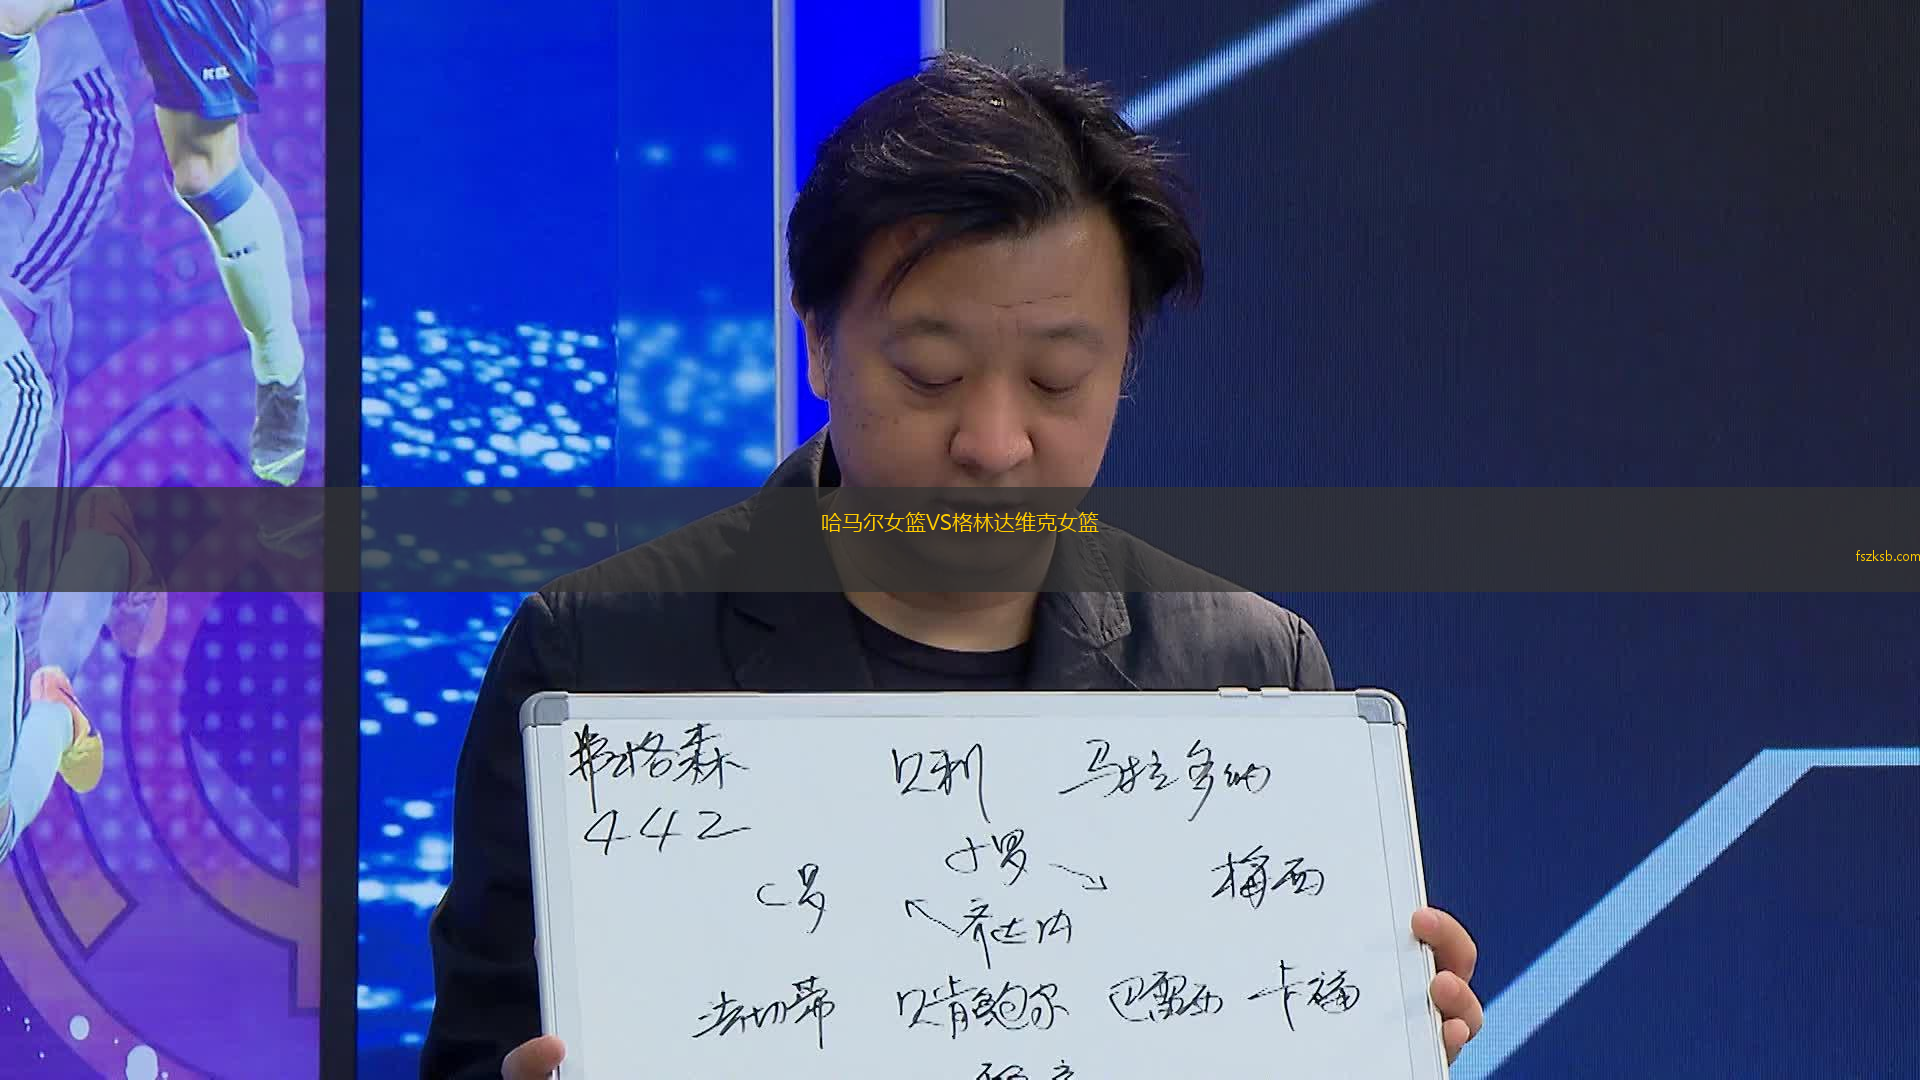 哈马尔女篮VS格林达维克女篮
fszksb.com
弗格森 贝利 马拉多纳
442
小罗
C罗 梅西
齐达内
法切蒂 贝肯鲍尔 巴雷西 卡福